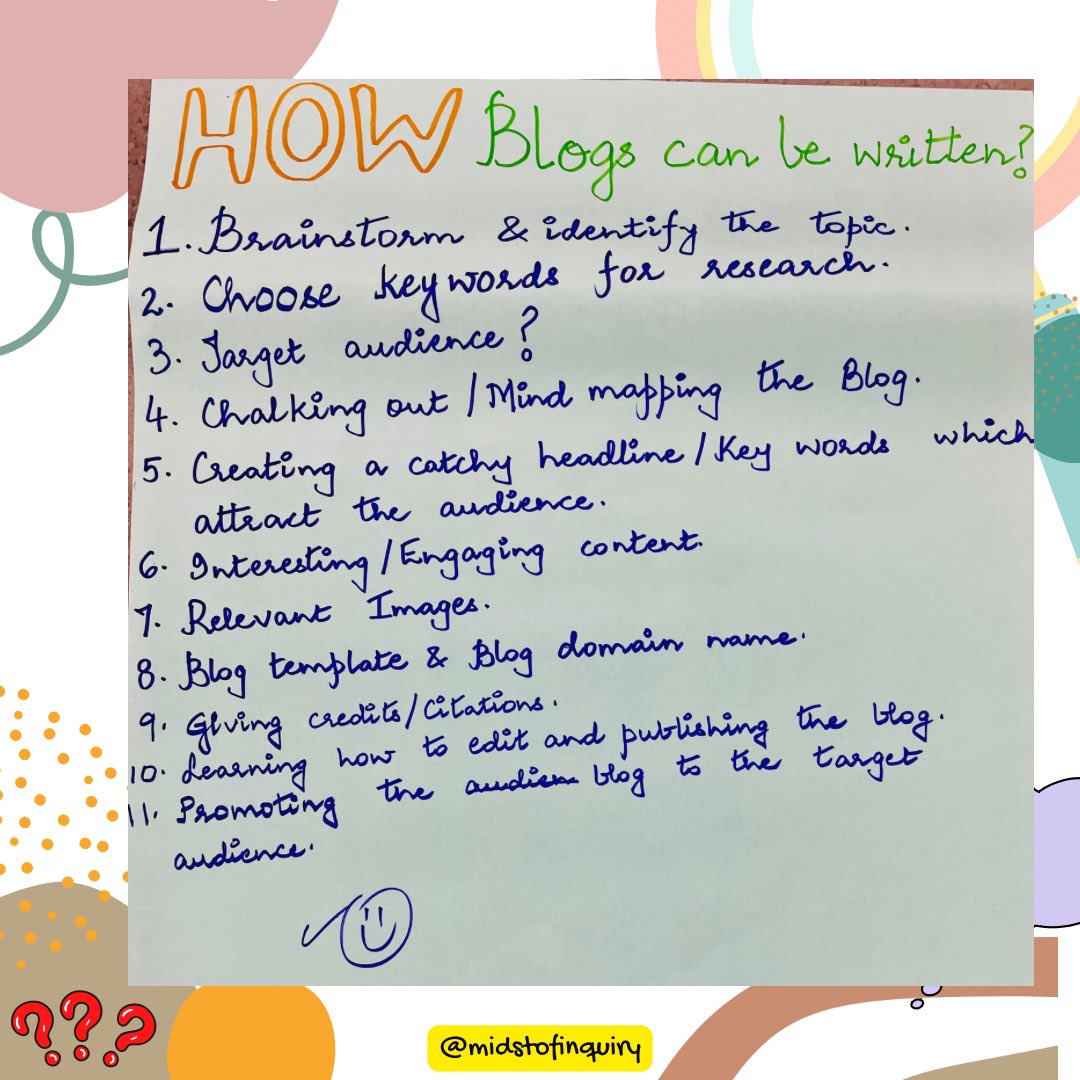 HOW Blogs can be written?
1. Brainstorm & identify the topic.
2. Choose keywords for research.
3. Target audience?
4. Chalking out / Mind mapping the Blog.
5. Creating a catchy headline / Key words which
attract the audience.
6. Interesting / Engaging content.
7. Relevant Images.
8. Blog template & Blog domain name.
9. Giving credits / Citations.
10. Learning how to edit and publishing the blog.
11. Promoting the audien blog to the target
audience.
???
@midstofinquiry